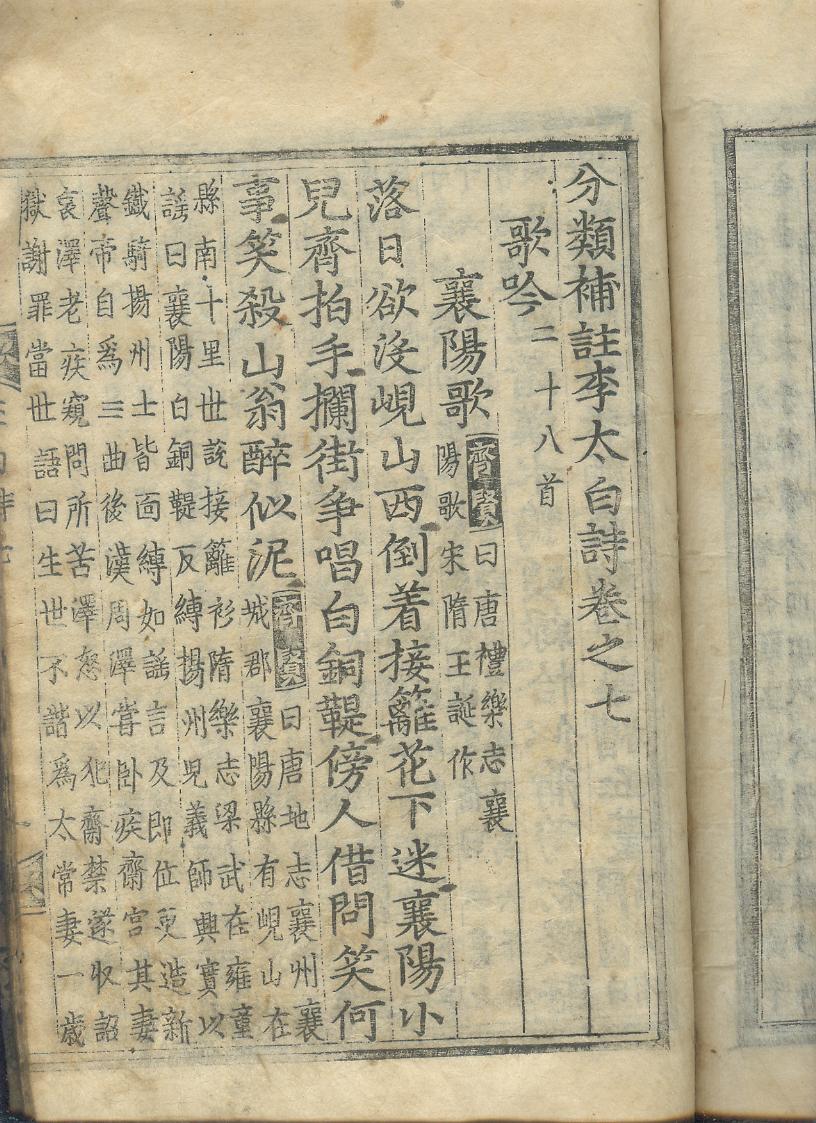 分類補註李太白詩卷之七
歌吟二十八首
襄陽歌
齊賢曰唐禮樂志襄
陽歌宋隋王誕作
落日欲沒峴山西倒着接籬花下迷襄陽小
兒齊拍手攔街争唱白銅鞮傍人借問笑何
事笑殺山翁醉似泥
齊賢曰唐地志襄州襄
城郡襄陽縣有峴山在
縣南十里世說接籬衫隋樂志梁武在雍童
謡曰襄陽白銅鞮反縛揚州兒義師興實以
鐵騎揚州士皆面縛如謡言及即位更造新
聲帝自爲三曲後漢周澤嘗卧疾齋宮其妻
哀澤老疾窺問所苦澤怒以犯齋禁遂収詔
獄謝罪當世語曰生世不諧爲太常妻一歳